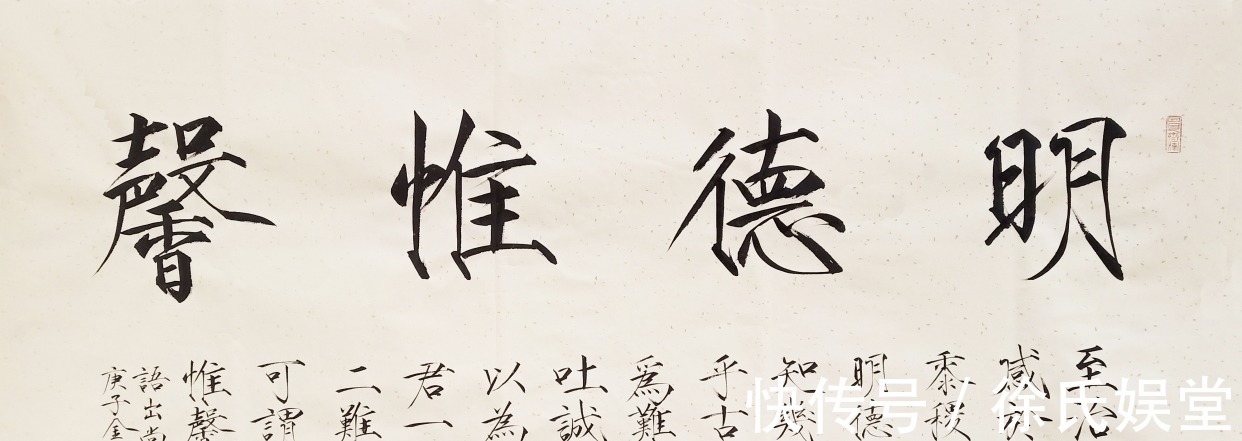 明德惟馨
至治
感
黍稷
明德
知幾
乎古
為難
吐誠
以為
君一
二難
可謂
惟馨
語出尚
庚子金
快传号 / 徐氏娱堂